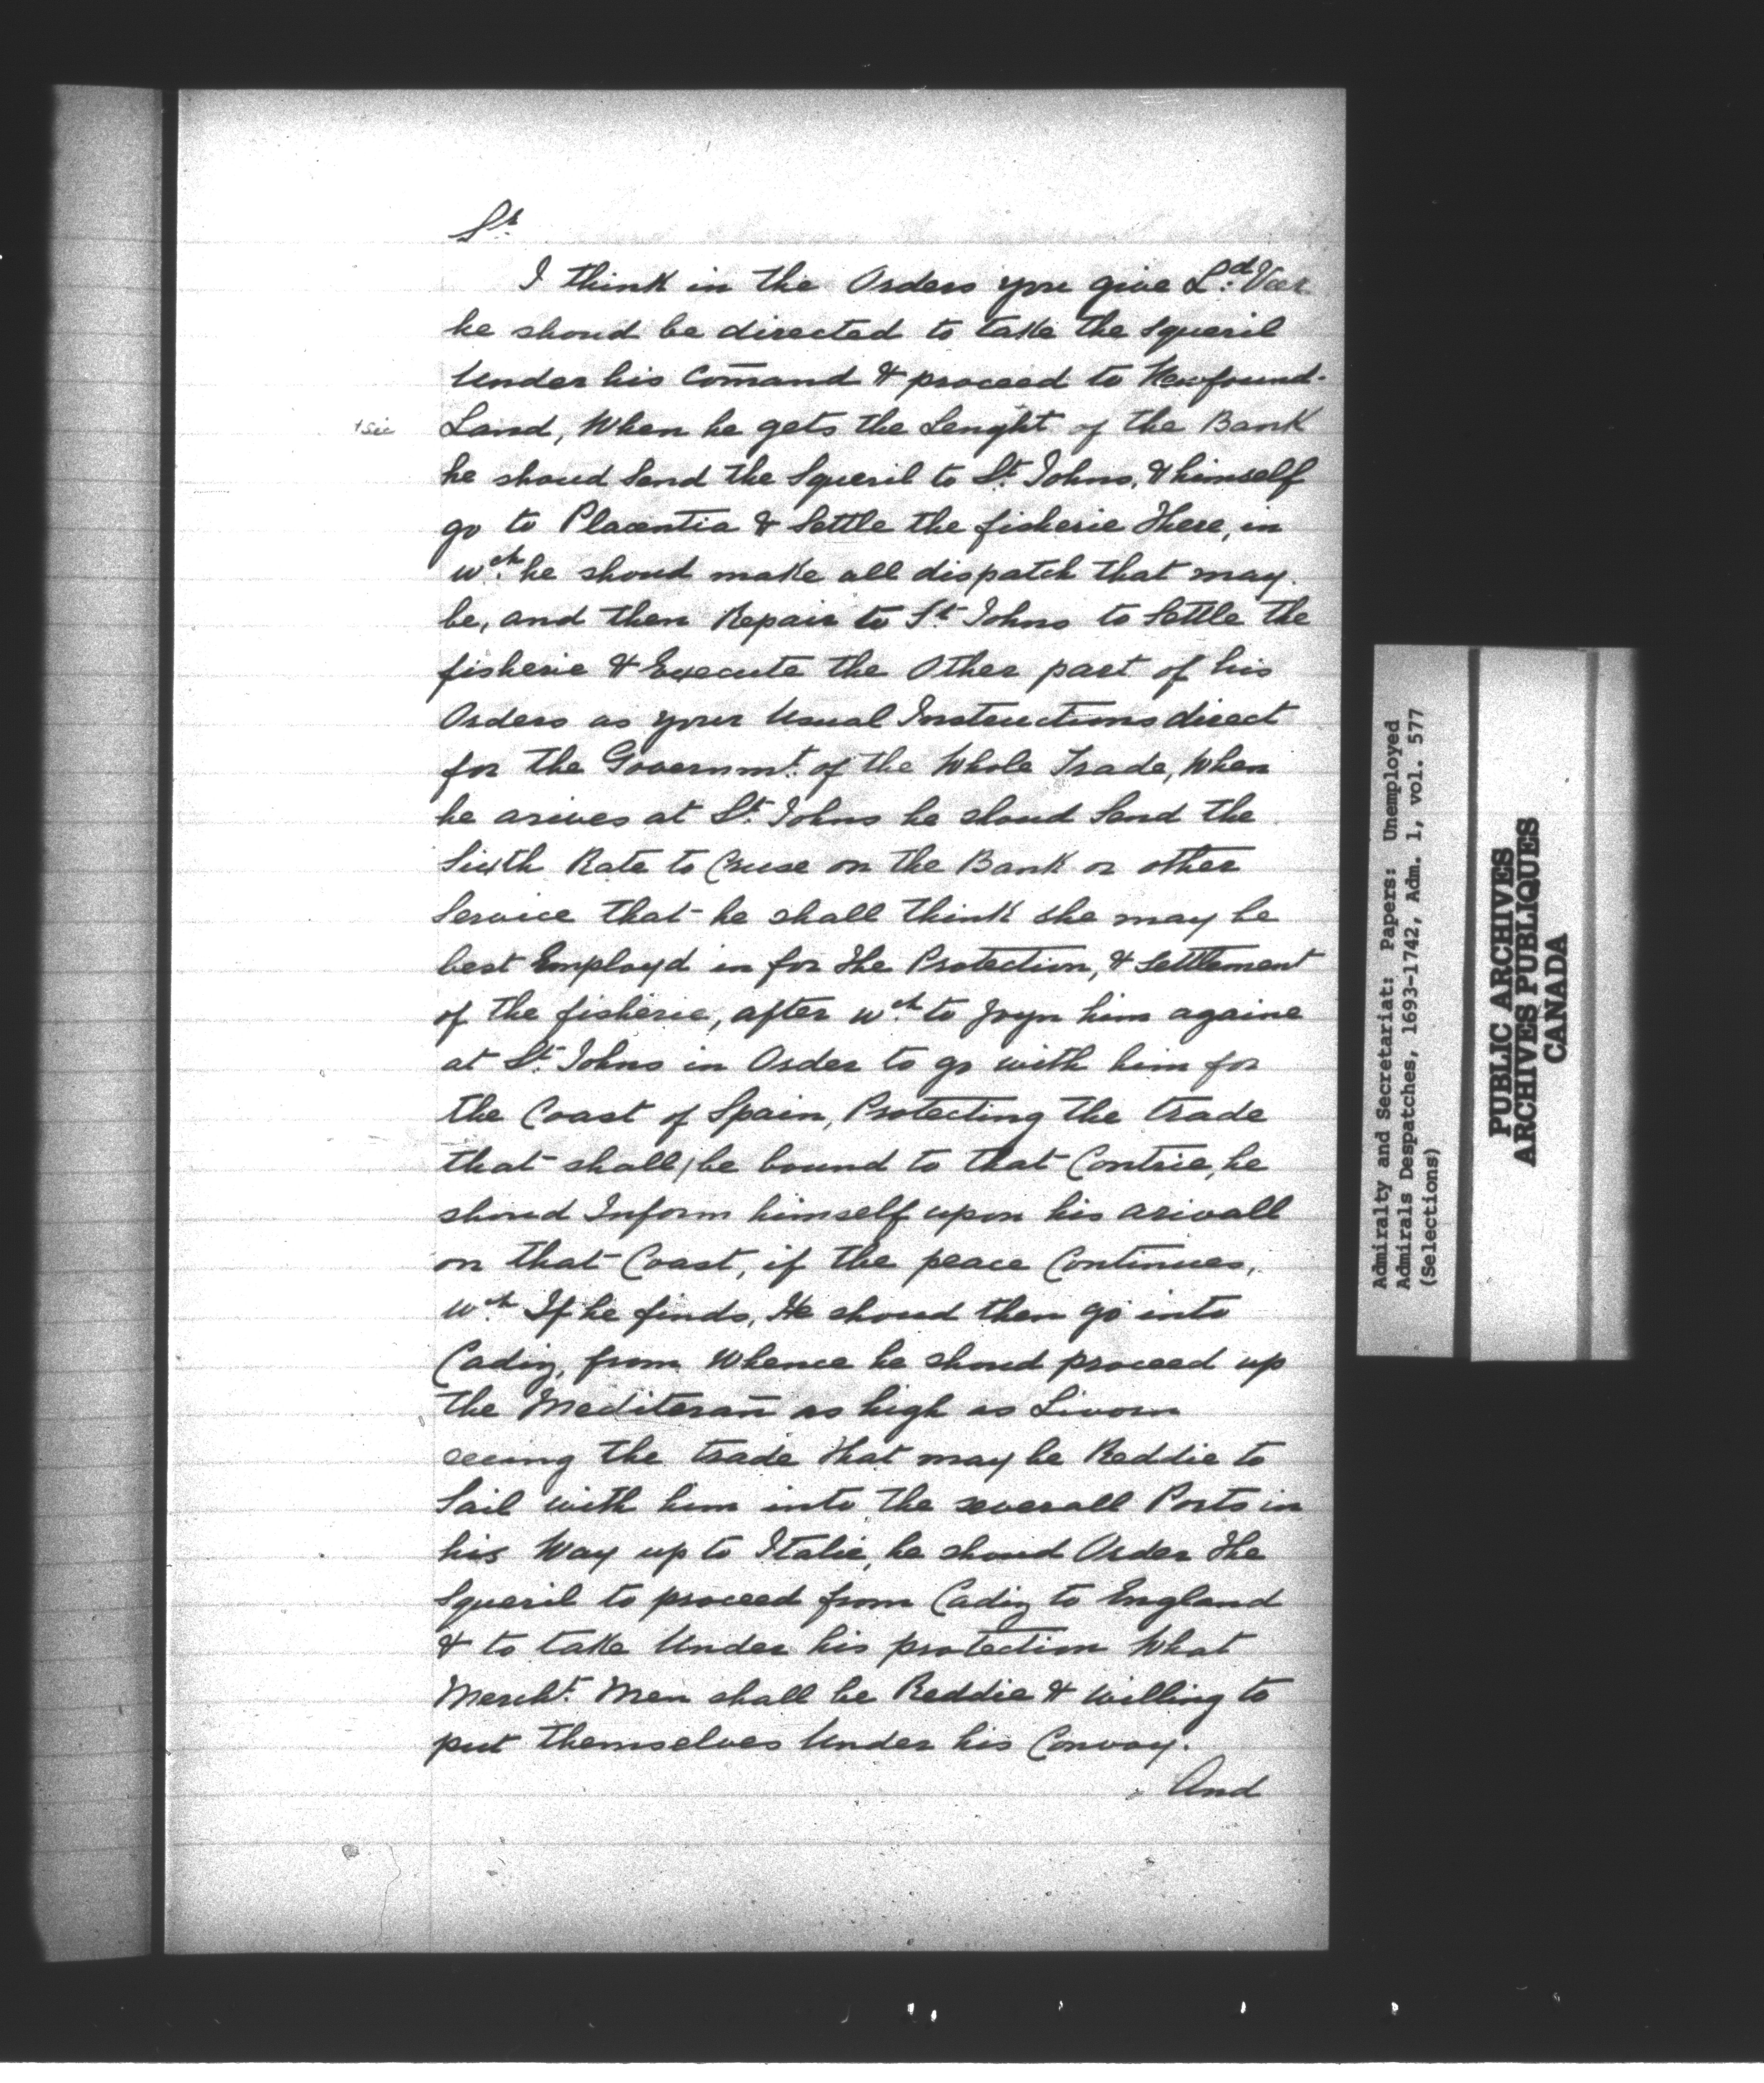 Sr.
I think in the Orders you give Ld. Vaer
he shoud be directed to take the Squeril
Under his Comand & proceed to Newfound-
+sic Land, When he gets the Lenght of the Bank
he shoud Send the Squeril to St. Johns, & himself
go to Placentia & Settle the fisherie There, in
wch. he shoud make all dispatch that may
be, and then Repair to St. Johns to Settle the
fisherie & Execute the Other part of his
Orders as your Usual Instructions direct
for the Governmt. of the Whole Trade, When
he arives at St. Johns he shoud Send the
Sixth Rate to Cruse on the Bank or other
Service that he shall think she may be
best Employd in for The Protection, & Settlement
of the fisherie, after wch. to Joyn him againe
at St. Johns in Order to go with him for
the Coast of Spain, Protecting The trade
that shall be bound to that Contrie, he
shoud Inform himself upon his arivall
on that Coast, if the peace Continues,
wch. If he finds, He shoud then go into
Cadiz, from Whence he shoud proceed up
The Mediteran̄ as high as Livorn
seeing the trade that may be Reddie to
Sail with him into the severall Ports in
his Way up to Italie, he shoud Order The
Squeril to proceed from Cadiz to England
& to take Under his protection What
Mercht. Men shall be Reddie & Willing to
put themselves Under his Convoy.
And
Admiralty and Secretariat: Papers: Unemployed
Admirals Despatches, 1693-1742, Adm. 1, vol. 577
(Selections)
PUBLIC ARCHIVES
ARCHIVES PUBLIQUES
CANADA